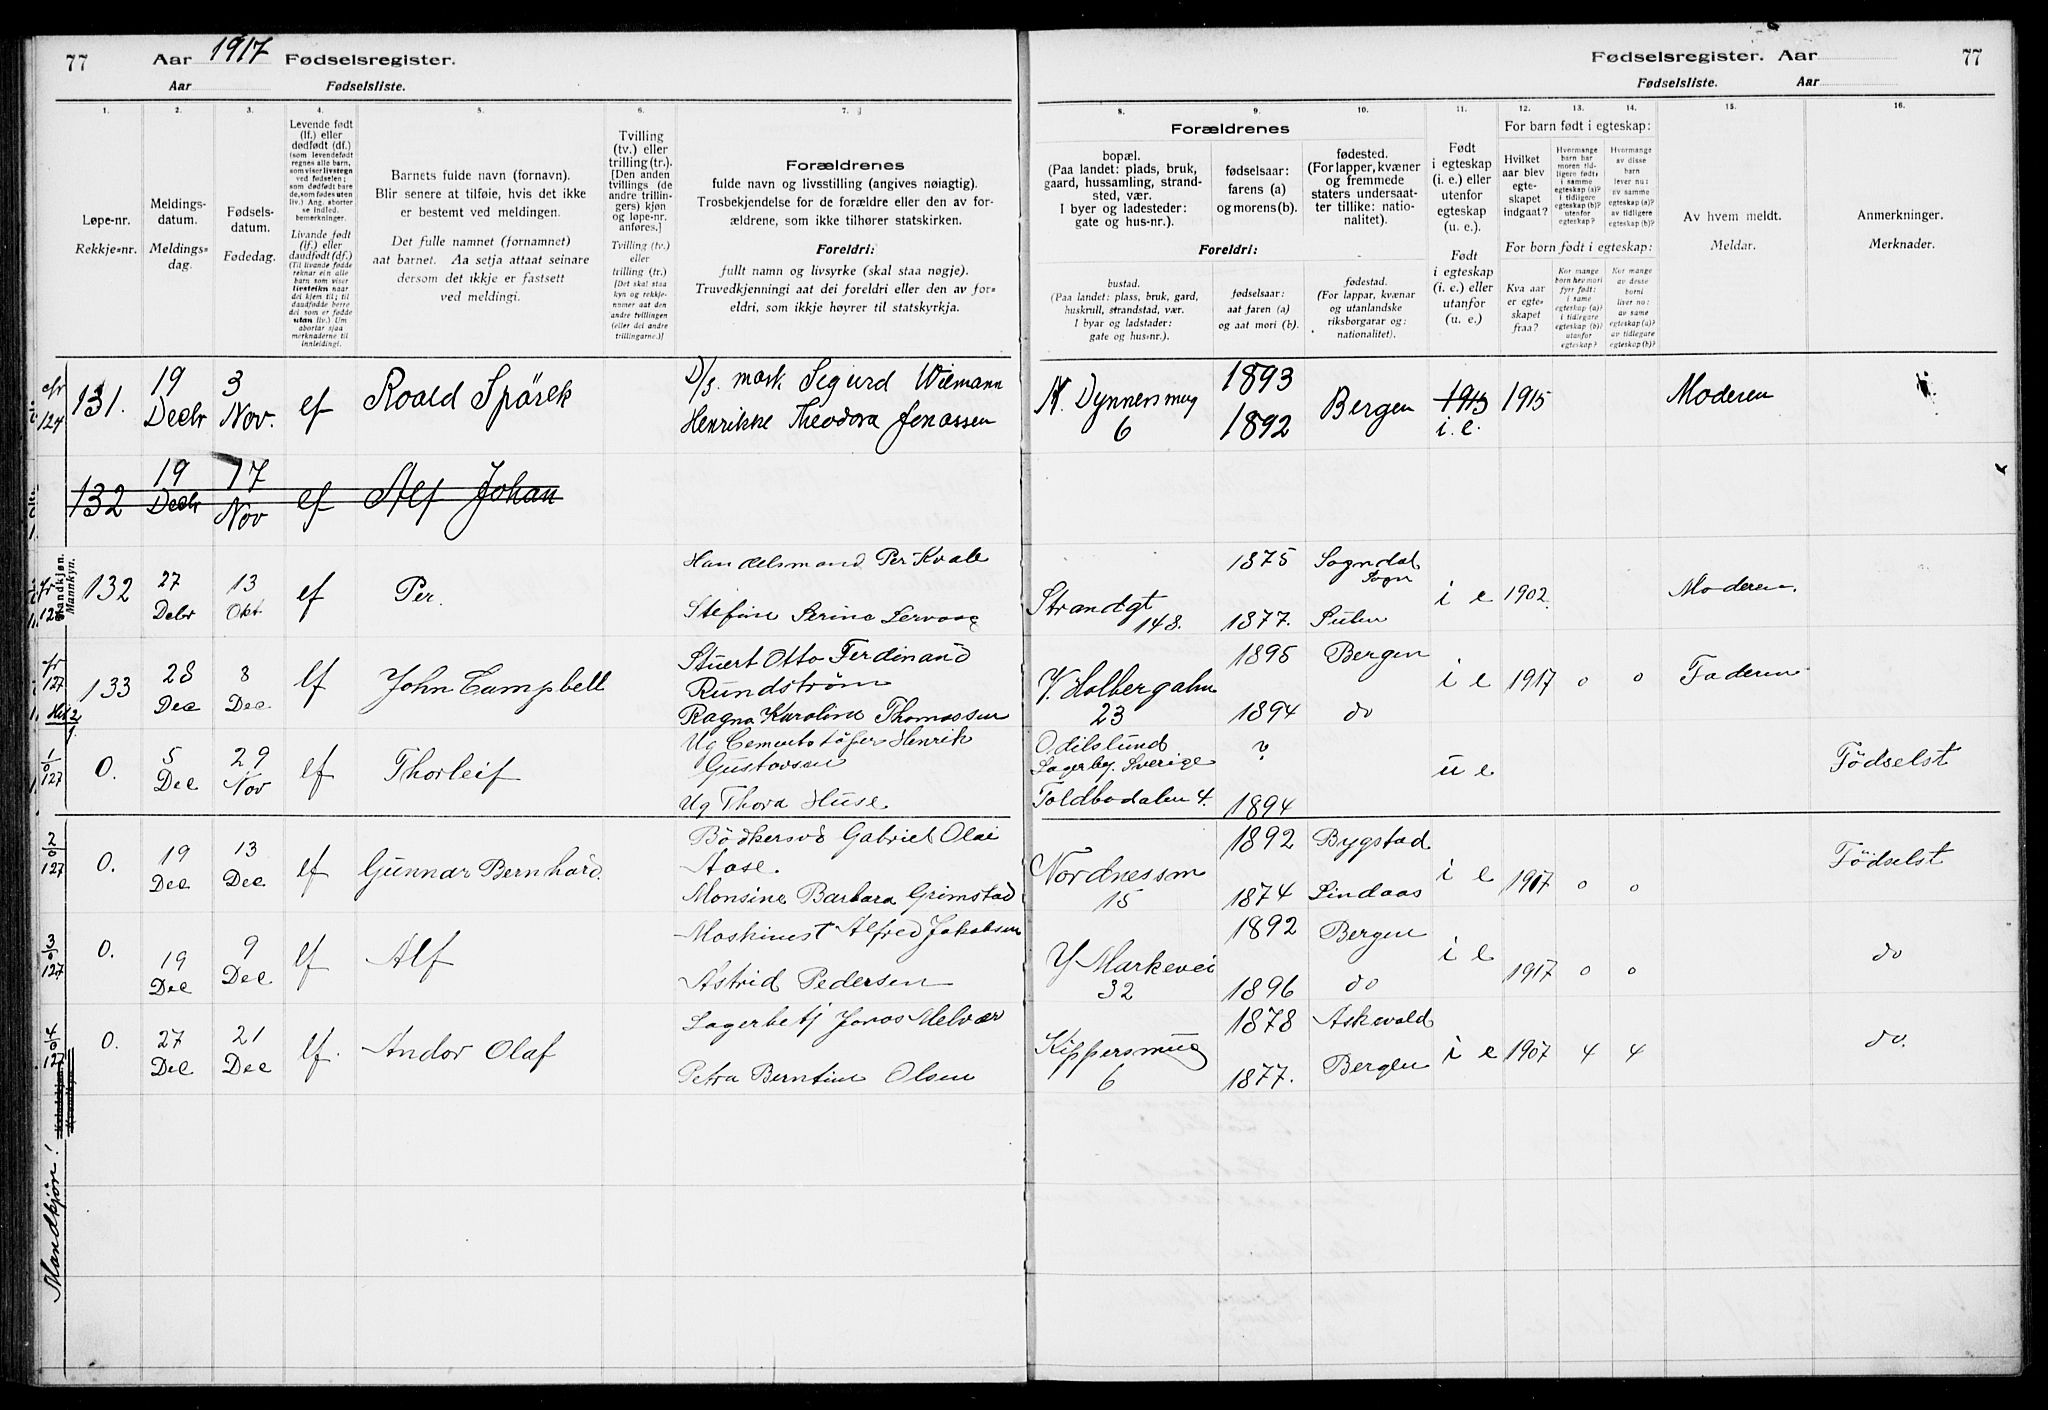 77 Aar 1917 Fødselsregister.
Aar Fødselsliste.
Fødselsregister. Aar 77
Fødselsliste. Aar
1. 2. 3. 4. 5. 6. 7. 8. 9. 10. 11. 12. 13. 14. 15. 16.
Løpe-nr.
Rekkje-nr.
Meldings-
datum.
Meldings-
dag.
Fødsels-
datum.
Fødedag.
Levende født
(lf.) eller
dødfødt (df.)
(som levendefødt
regnes alle barn,
som viser livstegn
ved fødselen;
som dødfødt bare
de, som fødes uten
liv.) Ang. aborter
se indled.
bemerkninger.
Livande født
(lf.) eller
daudfødt (df.)
(Til livande fødde
reknar ein alle
barn som viser
livsteikn naar
dei kjem til; til
daudfødde berre
dei som er fødde
utan liv.) Um
abortar sjaa
merknaderne til
innleidingi.
Barnets fulde navn (fornavn).
Blir senere at tilføie, hvis det ikke
er bestemt ved meldingen.
Det fulle namnet (fornamnet)
aat barnet. Aa setja attaat seinare
dersom det ikkje er fastsett
ved meldingi.
Tvilling
(tv.) eller
trilling (tr.).
[Den anden
tvillings (de
andre trillin-
gers) kjøn
og løpe-nr.
anføres.]
Tvilling (tv.)
eller
trilling (tr.)
[Det skal staa
kyn og rekkje-
nummer aat den
andre tvillingen
(eller dei andre
trillingarne.)]
Forældrenes
fulde navn og livsstilling (angives nøiagtig).
Trosbekjendelse for de forældre eller den av for-
ældrene, som ikke tilhører statskirken.
Foreldri:
fullt namn og livsyrke (skal staa nøgje).
Truvedkjenningi aat dei foreldri eller den av for-
eldri, som ikkje høyrer til statskyrkja.
Forældrenes
bopæl.
(Paa landet: plads, bruk,
gaard, hussamling, strand-
sted, vær.
I byer og ladesteder:
gate og hus-nr.).
fødselsaar:
farens (a)
og morens (b).
fødested.
(For lapper, kvæner
og fremmede
staters undersaat-
ter tillike: natio-
nalitet).
Foreldri:
bustad.
(Paa landet: plass, bruk, gard,
huskrull, strandstad, vær.
I byar og ladstader:
gate og hus-nr.).
fødselsaar:
aat faren (a)
og aat mori (b).
fødestad.
(For lappar, kvænar
og utanlandske
riksborgarar og:
nationalitet).
Født
i egteskap
(i. e.) eller
utenfor
egteskap
(u. e.).
Født
i egteskap
(i. e.) eller
utanfor
(u. e.)
For barn født i egteskap:
Hvilket
aar blev
egte-
skapet
indgaat?
Hvormange
barn har
moren tid-
ligere født,
i samme
egteskap (a)?
i tidligere
egteskap (b)?
utenfor
egteskap?
Hvormange
av disse
barn
lever nu:
av samme
egteskap (a)?
av tidligere
egteskap (b)?
For born født i egteskap:
Kva aar
er egte-
skapet
fraa?
Kor mange
born hev mori
fyrr født:
i same
egteskap (a)?
i tidlegare
egteskap (b)?
utanfor
egteskap?
Kor mange
av desse
borni
liver no:
av same
egteskap (a)?
av tidlegare
egteskap (b)?
Av hvem meldt.
Meldar.
Anmerkninger.
Merknader.
cfr 124 131. 19 Decbr 3 Nov. lf Roald Spörck
D/s. mask Sigurd Wiemann
Henrikke Theodora Jonassen
N. Dynnersmug 6 1893 1892 Bergen 1915 i. e. 1915 Moderen
132 19 Decbr 17 Nov lf Alf Johan
Mandkjøn.
Mannkyn.
132 27 Debr 13 Okt lf Per.
Handelsmand Per Kvale
Stefine Serine
Strandgt 148. 1875 1877. Sogndal Sogn i e 1902. Moderen.
127 133 28 Dec 8 Dec lf John Campbell
Stuert Otto Ferdinand
Rundstrøm
Ragna Karoline Thomassen
Y. Holbergalm 23 1895 1894 Bergen do i e 1917 0 0 Faderen
1/0 127 0. 5 Dec 29 Nov lf Thorleif
Ug Cementstøper Henrik
Gustavsen
Ug Thora Huse
Odilslund
Sverige
Toldbodalm 4. ? 1894 u e Födselst
2/0 127 0. 19 Dec 13 Dec lf Gunnar Bernhard.
Bödkersv Gabriel Olai
Aase.
Monsine Barbara Grimstad
Nordnessm 15 1892 1874 Bygstad Lindaas i e 1917 0 0 Födselst
3/0 127 0. 19 Dec 9 Dec lf Alf
Maskinist Alfred Jakobsen
Astrid Pedersen
Y Markevei 32 1892 1896 Bergen do i e 1917 0 0 do
4/0 127 0. 27 Dec 21 Dec lf. Andor Olaf
Lagerbetj Jonas Melvær
Petra Berntine Olsen
Kippersmug 6 1878 1877. Askevold Bergen i e 1907 4 4 do.
Mandkjön!